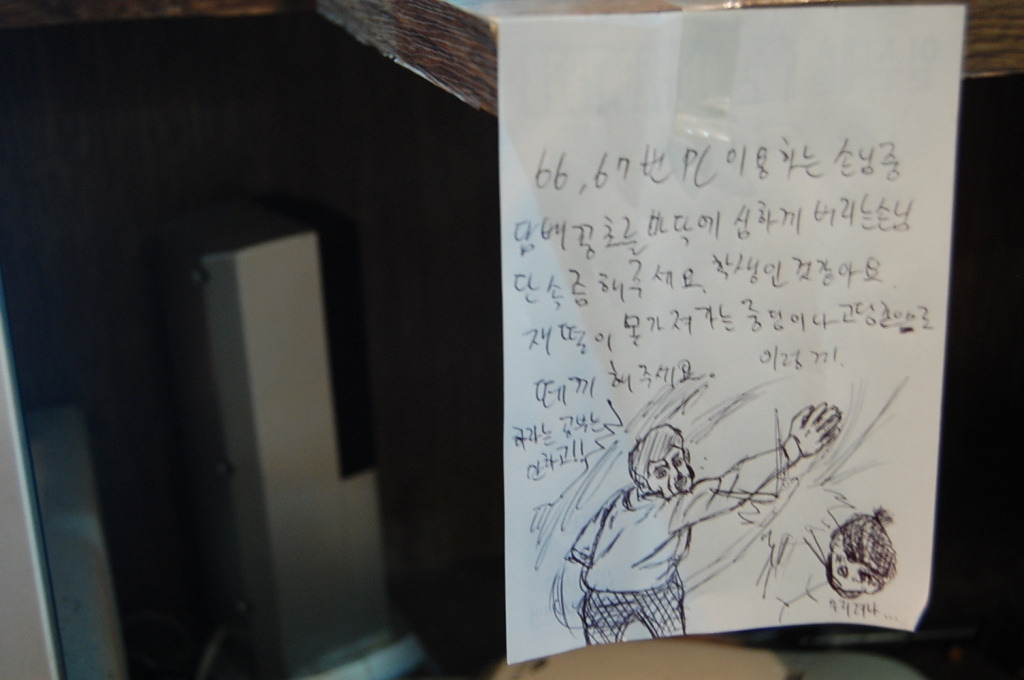 66, 67번 PC 이용하는 손님중
담배꽁초를 바닥에 심하게 버리는손님
단속좀 해주세요. 학생인 것같아요.
재떨이 몰가져가는 중덩이나 고딩춘으로
떼끼 해주세요.
이렇끼.
하라는 공부는
안하고!!